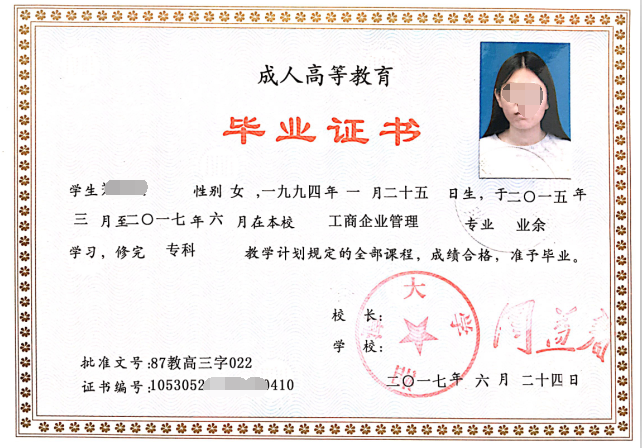 成人高等教育
毕业证书
学生 性别 女 ,一九九四年 一 月二十五 日生，于二〇一五年
三 月至二〇一七年六 月在本校 工商企业管理 专业 业余
学习，修完 专科 教学计划规定的全部课程，成绩合格，准予毕业。
大学
校 长：
学 校：
批准文号：87教高三字022
二〇一七年 六 月 二十四日
证书编号：1053052 0410